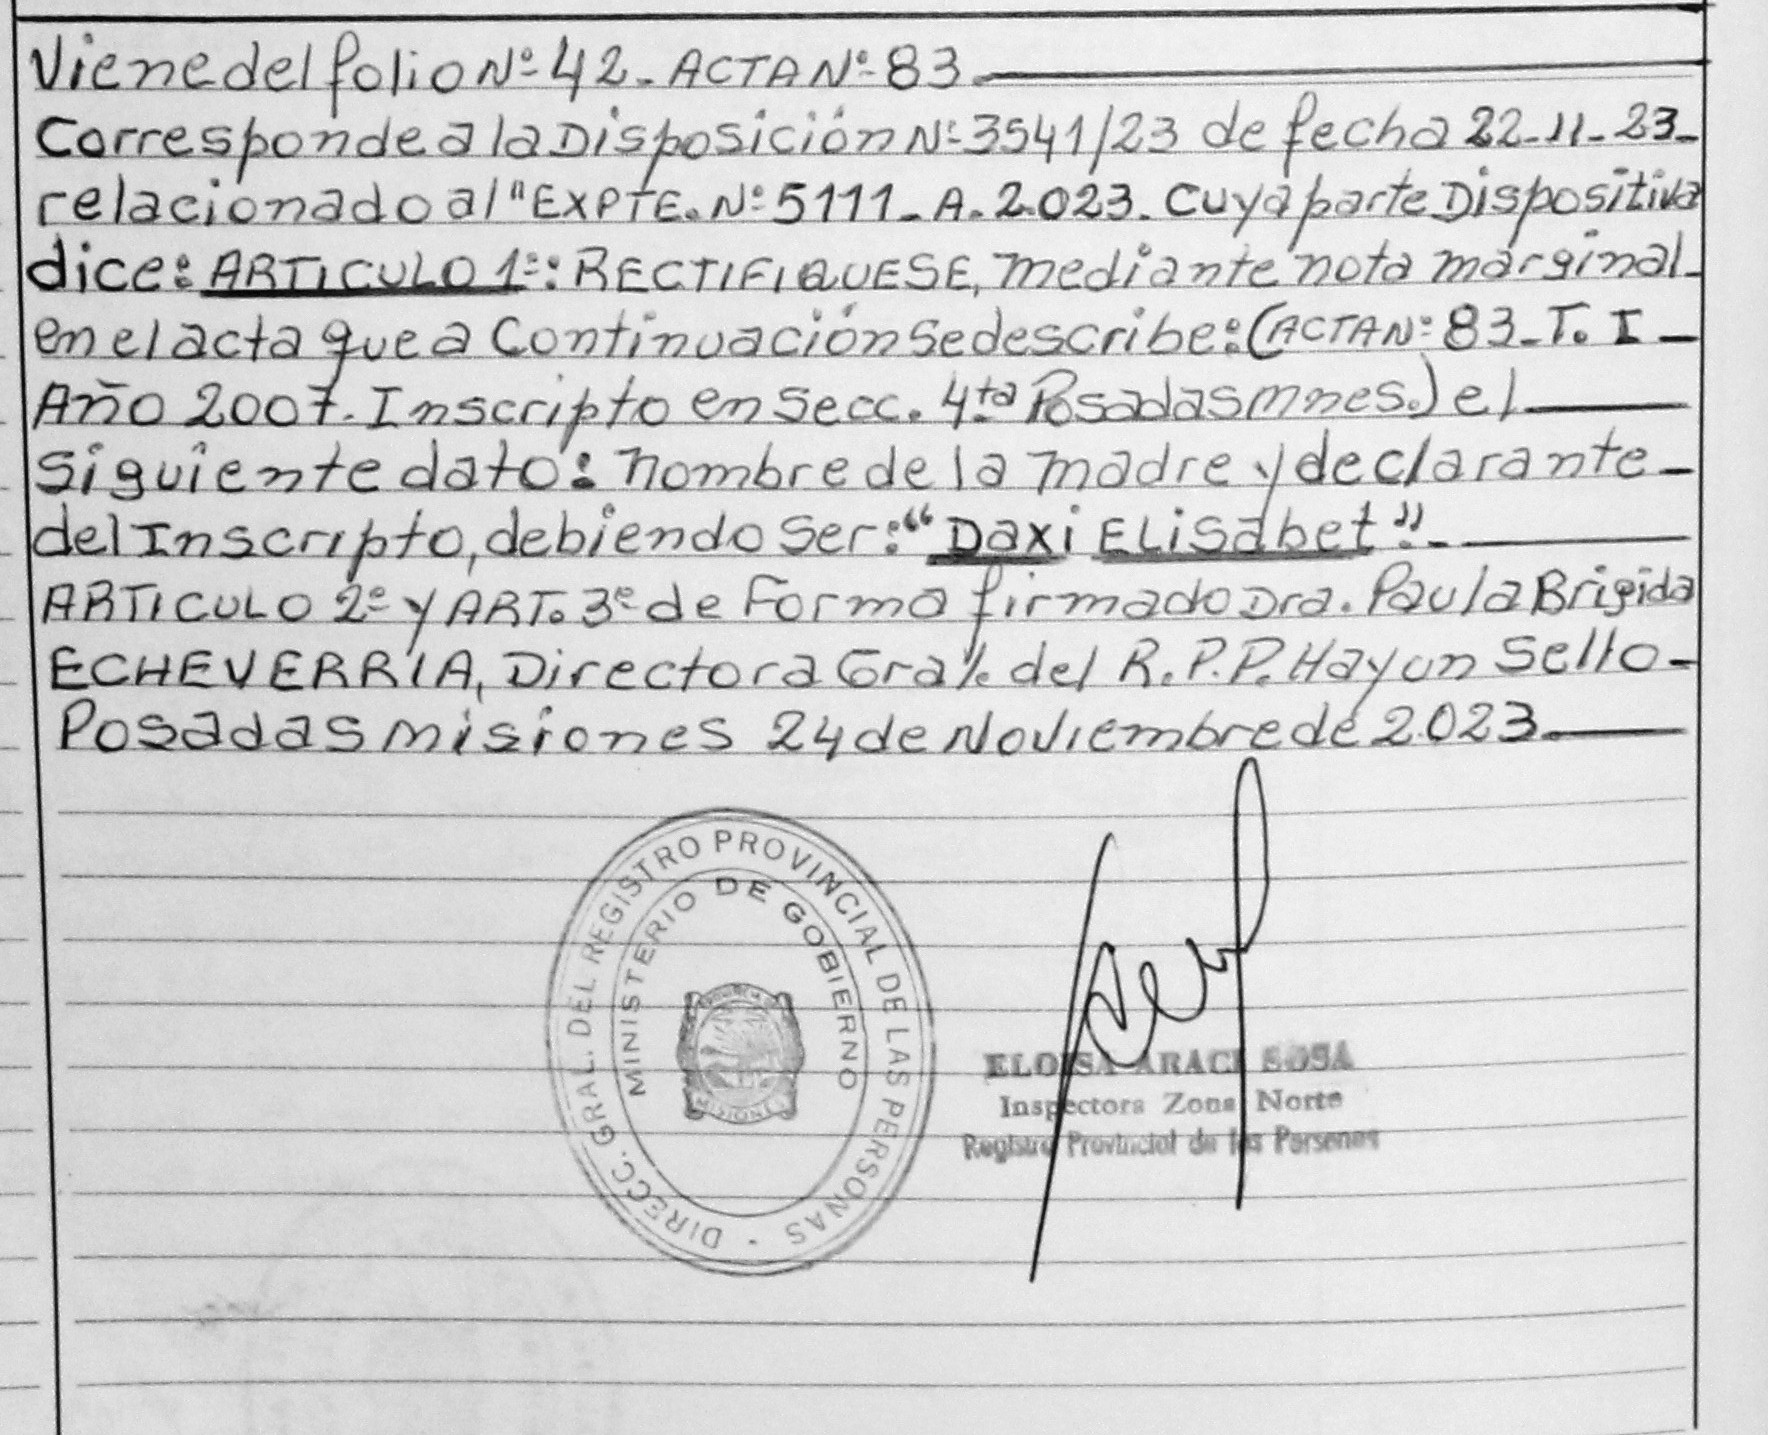 Viene del folio Nº 42 - ACTA Nº 83
Corresponde a la Disposición Nº 3541/23 de fecha 22-11-23-
relacionado al "EXPTE. Nº 5111 - A. 2.023. Cuya parte Dispositiva
dice: ARTICULO 1º: RECTIFIQUESE, mediante nota marginal-
en el acta que a Continuación Se describe: (ACTA Nº 83 - T. I -
Año 2007. Inscripto en Secc. 4ta Posadas Mnes.) el
Siguiente dato: nombre de la madre y declarante -
del Inscripto, debiendo Ser: "Daxi ELisabet".
ARTICULO 2º y ART. 3º de Forma firmado Dra. Paula Brigida
ECHEVERRIA, Directora Gral. del R.P.P. Hay un Sello -
Posadas misiones 24 de Noviembre de 2.023.
DIRECC. GRAL. DEL REGISTRO PROVINCIAL DE LAS PERSONAS
MINISTERIO DE GOBIERNO
MISIONES
ELOISA ARACI SOSA
Inspectora Zona Norte
Registro Provincial de las Personas